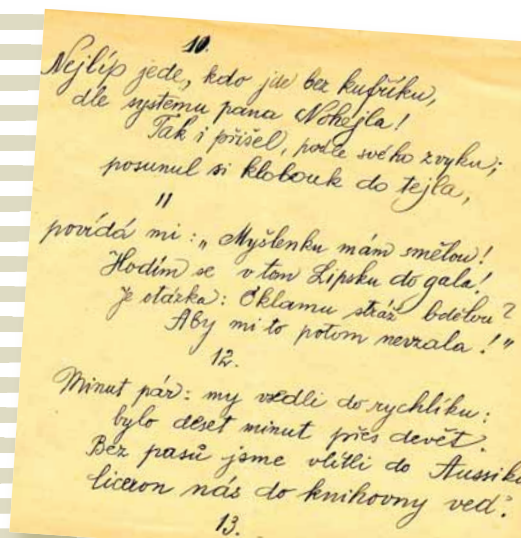 10.
Nejlíp jede, kdo jde bez kufříku,
dle systemu pana Nohejla!
Tak i přišel, podle svého zvyku;
posunul si klobouk do tejla,
11
povídá mi: „Myšlenku mám smělou!
Hodím se v tom Lipsku do gala!
Je otázka: Oklamu stráž bdělou?
Aby mi to potom nevzala!"
12.
Minut pár: my vsedli do rychlíku:
bylo deset minut přes devět.
Bez pasů jsme vlítli do
ciceron nás do knihovny ved'.
13.